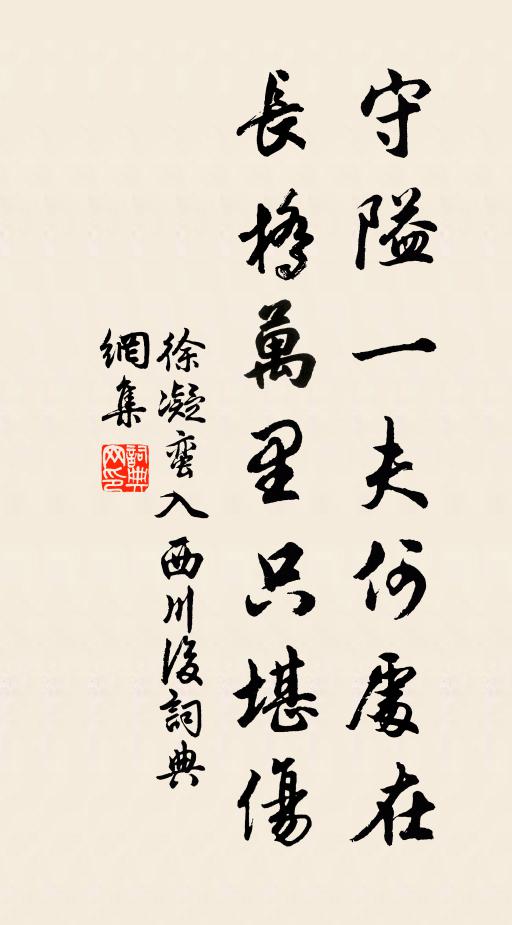 守隘一夫何處在
長橋萬里只堪傷
徐凝蠻入西川後詞典
網集
詞典
网印